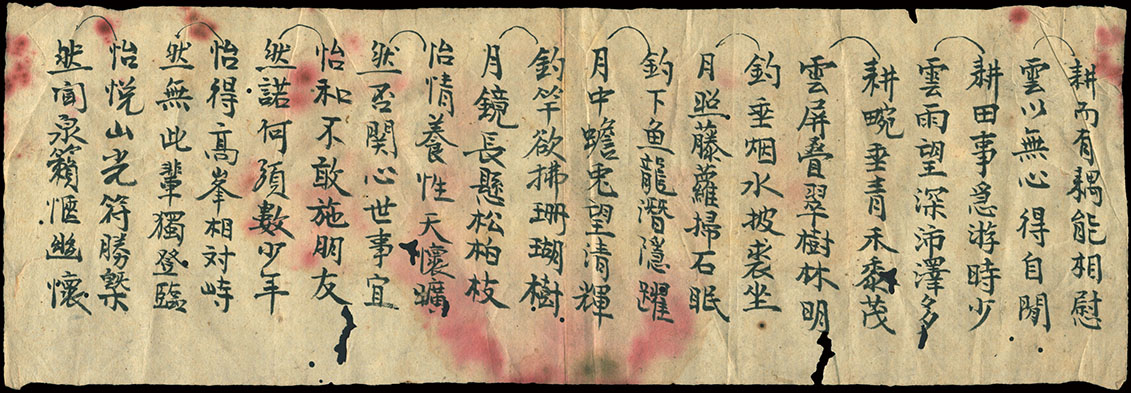 耕而有耦能相慰
雲以無心得自閒
耕田事急游時少
雲雨望深沛澤多
耕畹垂青禾黍茂
雲屏疊翠樹林明
釣垂烟水披裘坐
月照藤蘿掃石眠
釣下鱼龍潛隱躍
月中蟾兎望清輝
釣竿欲拂珊瑚樹
月鏡長懸松柏枝
怡情養性天懷曠
然否関心世事宜
怡和不敢施朋友
然諾何須數少年
怡得高峯相对峙
然無此輩獨登臨
怡悅山光符勝槩
然闻泉籟愜幽懷